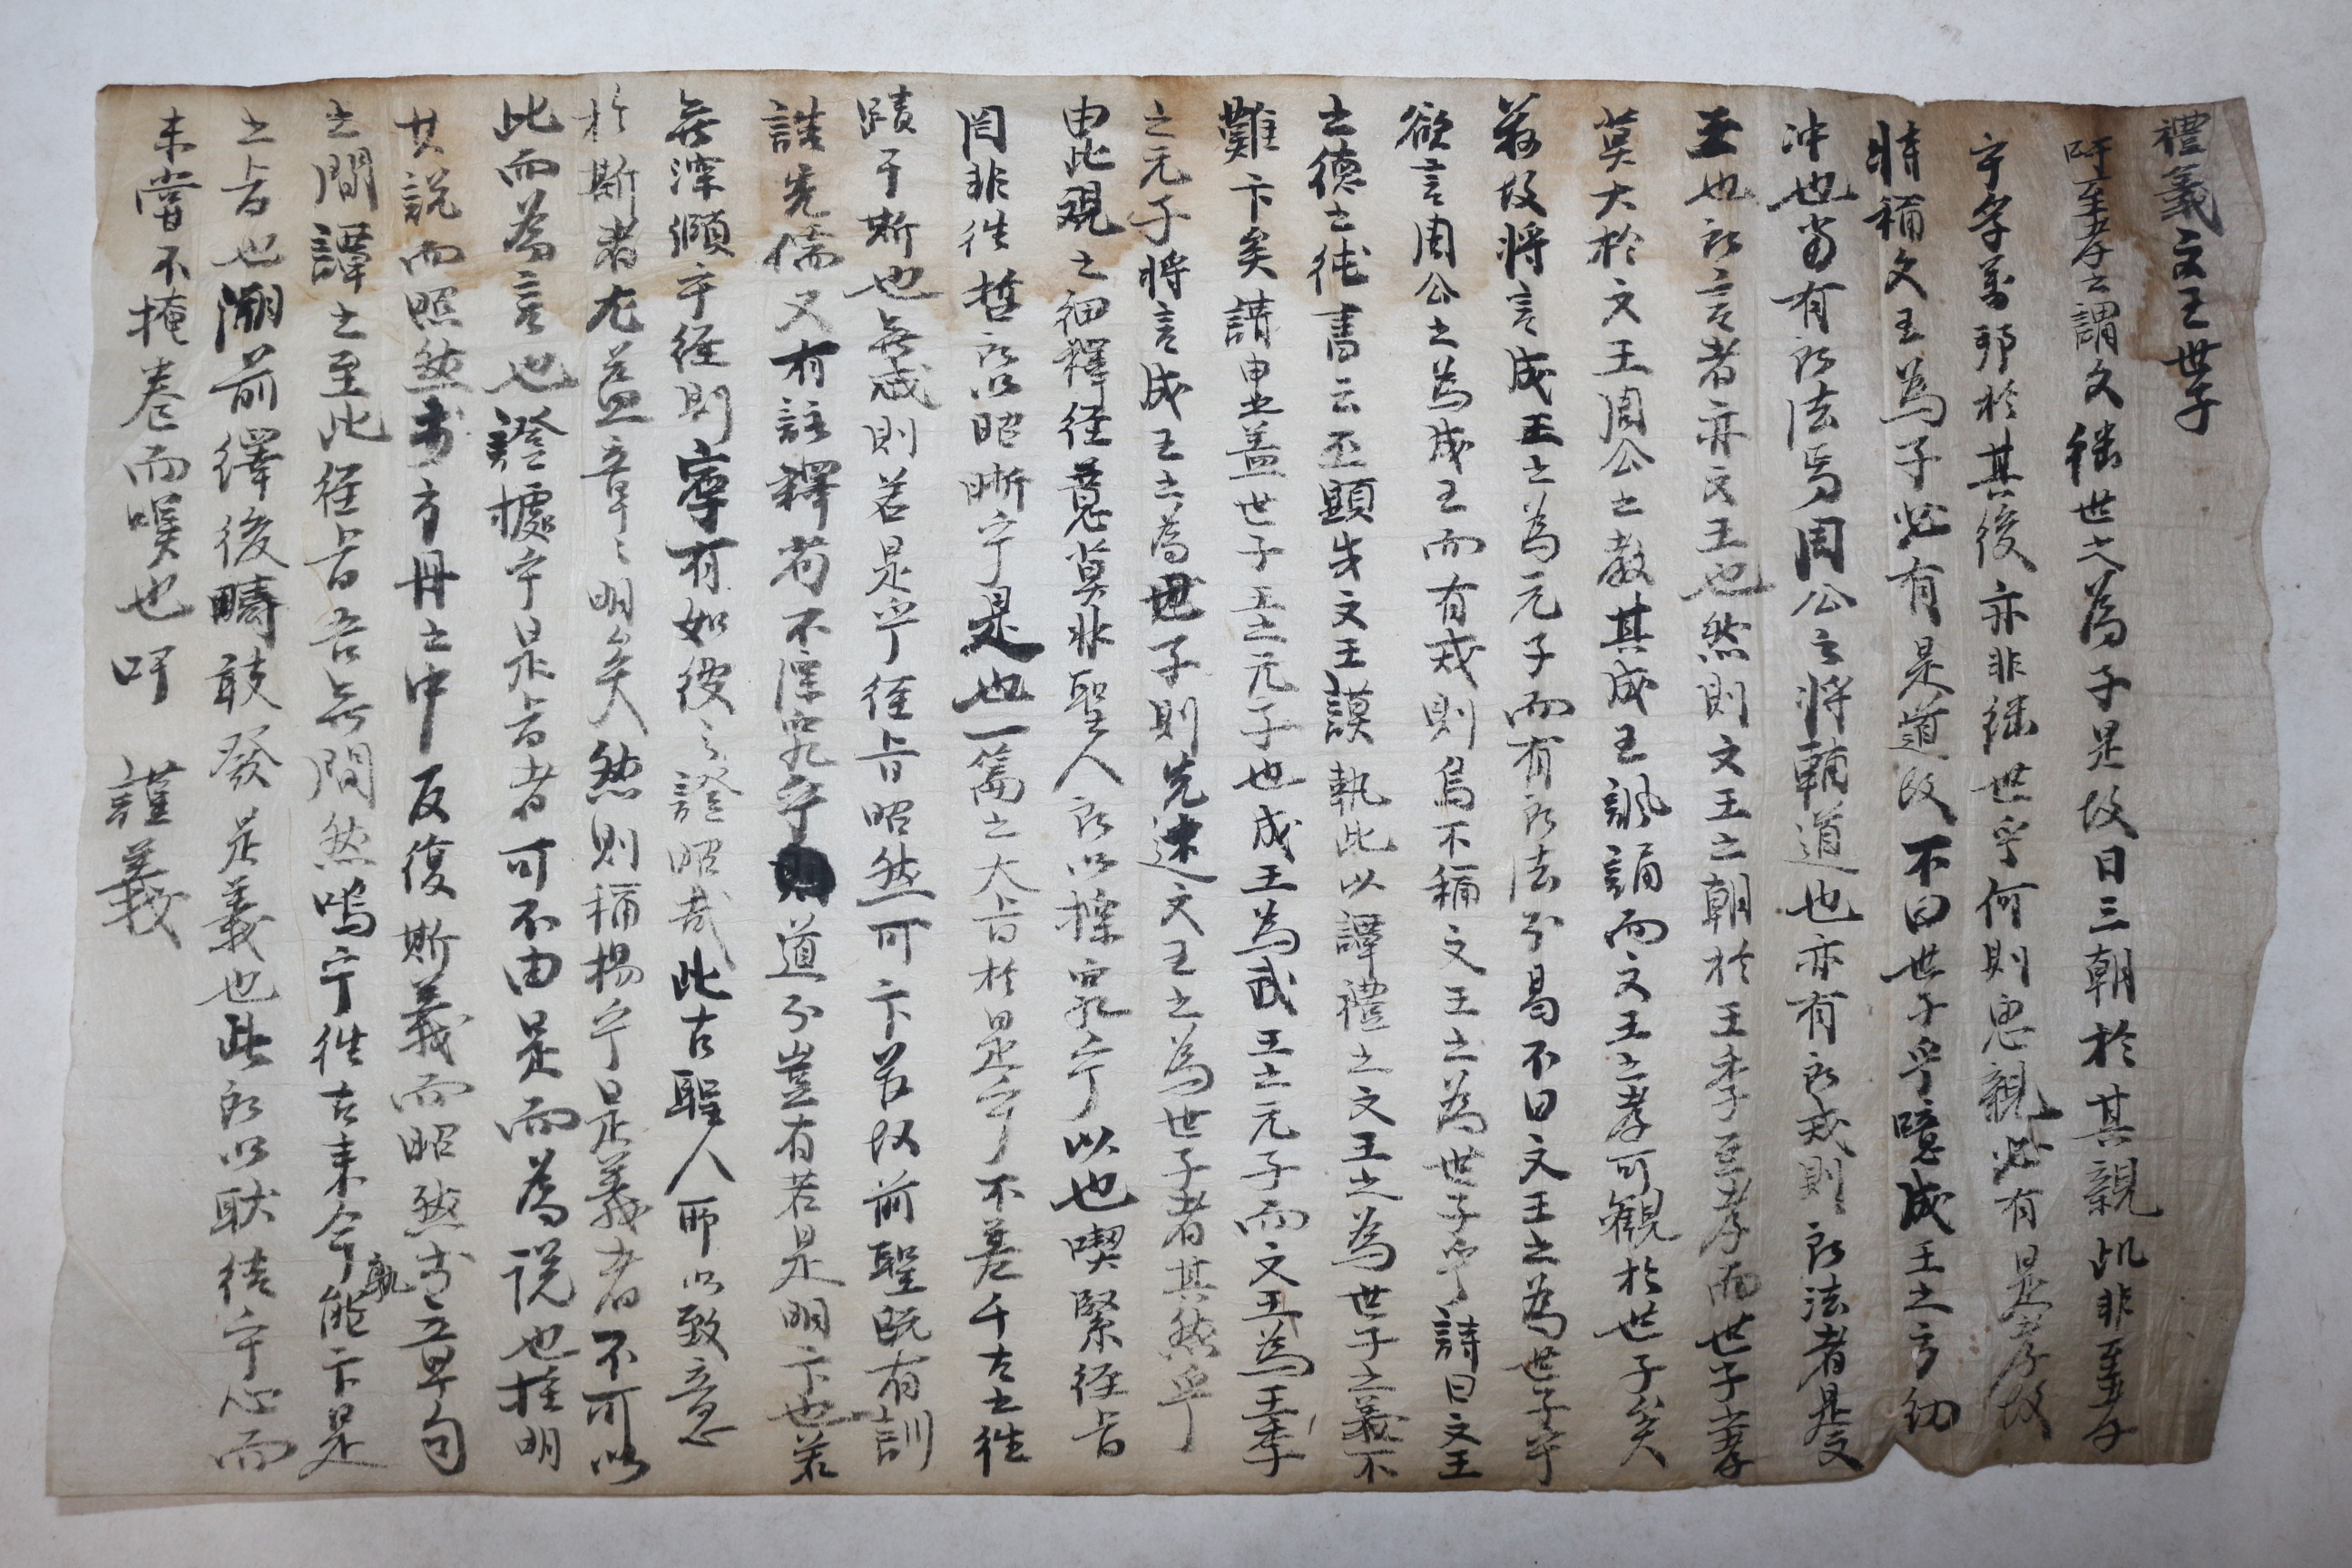 禮義文王世子
吁至孝之謂文継世之為子是故日三朝於其親此非至孝
乎孝著耶於其後亦非継世乎何則思親必有是孝故
特稱文王為子必有是道故不曰世子乎噫成王之方幼
冲也當有所法焉周公之將輔道也亦有所戒則所法者是文
王也所言者亦文王也然則文王之朝於王季至孝而世子孝
莫大於文王周公之教其成王諷誦而文王之孝可觀於世子矣
茲故將言成王之為元子而有所法尔曷不曰文王之為世子乎
欲言周公之為成王而有戒則烏不稱文王之為世子乎詩曰文王
之德之純書云丕顯哉文王謨執此以譯禮之文王之為世子之義不
難卞矣請申之盖世子王之元子也成王為武王之元子而文王為王季
之元子將言成王之為世子則先述文王之為世子者其然乎
由此觀之細釋徑意莫非聖人所以探究乎以也喫緊徑旨
罔非徃哲所以昭晣乎是也一篇之大旨於是乎不差千古之徃
蹟于斯也無惑則若是乎徑旨昭然可卞若故前聖既有訓
謨先儒又有註釋苟不深究乎道尔豈有若是明卞也若
無深頤乎徑則寧有如彼之證昭哉此古聖人所以致意
於斯者尤益章〻明矣然則稱揚乎是義者不可以
此而為言也證據乎是旨者可不由是而為説也推明
其説而照然方冊之中反復斯義而昭然章句
之間譯之至此徑旨吾無間然嗚乎徃古来今孰能卞是
之旨也溯前繹後疇敢發是義也此所以耿結乎心而
未嘗不掩卷而嘆也吁　謹義